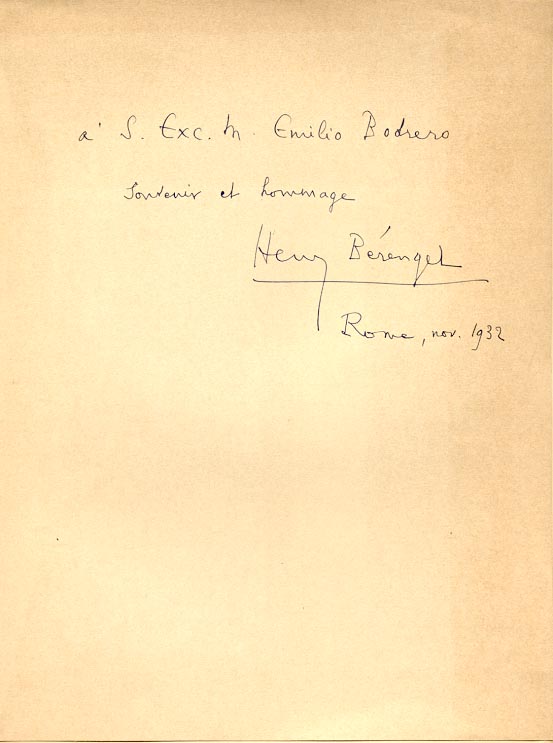 à S. Exc. M. Emilio Bodrero
Souvenir et hommage
Henry Bérenger
Rome, nov. 1932